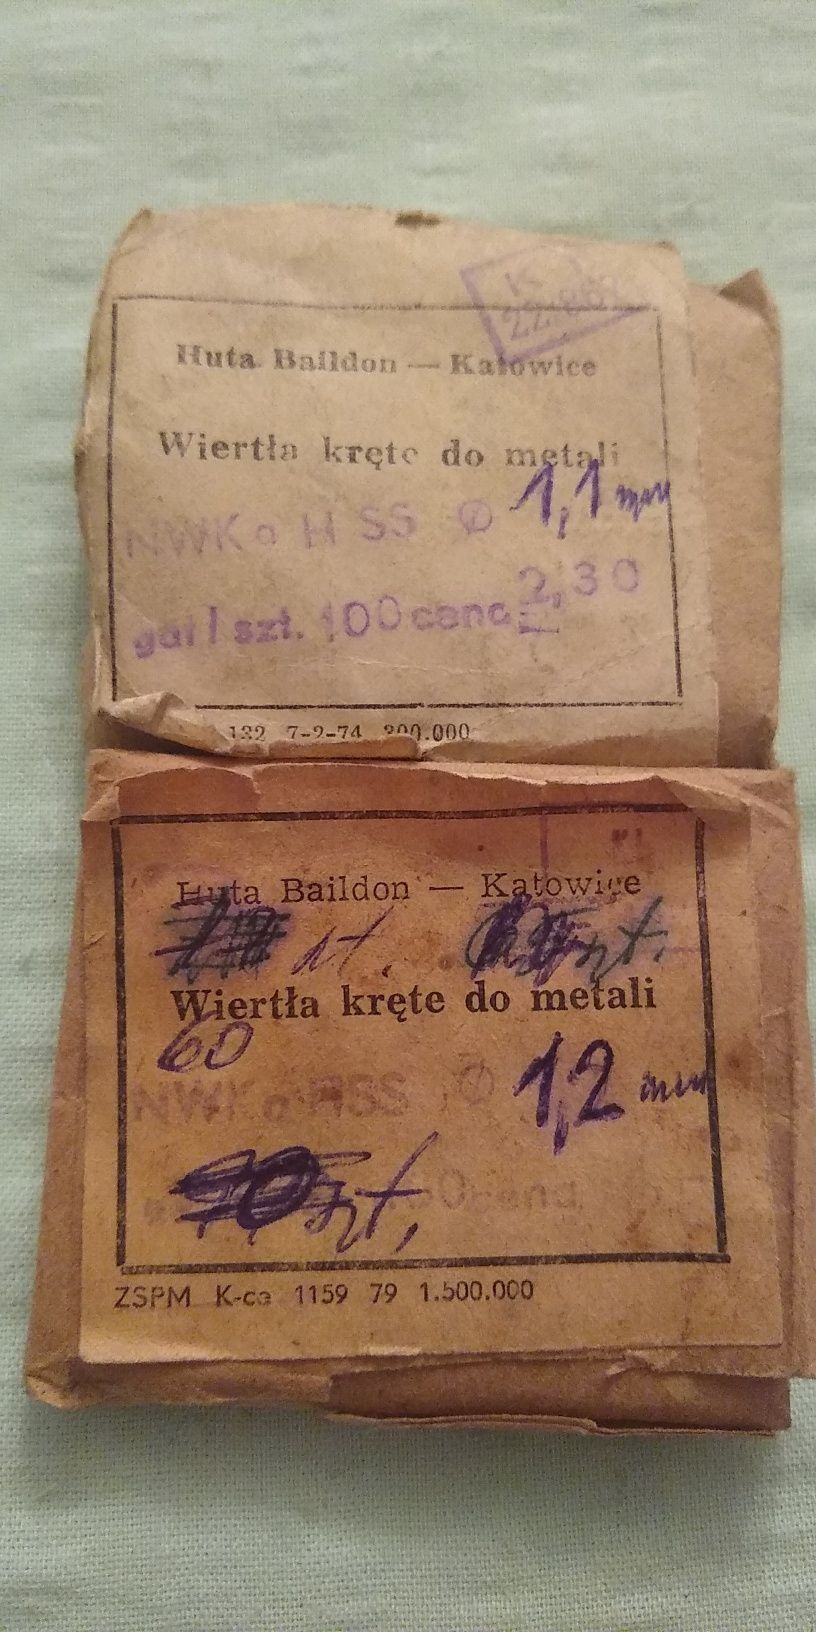 Huta Baildon — Katowice
Wiertła kręte do metali
NWKa HSS ∅ 1,1 mm
gat I szt. 100 cena 2,30
132 7-2-74 300.000
Huta Baildon — Katowice
szt. szt.
Wiertła kręte do metali
60
NWKa HSS ∅ 1,2 mm
szt. cena
ZSPM K-ce 1159 79 1.500.000